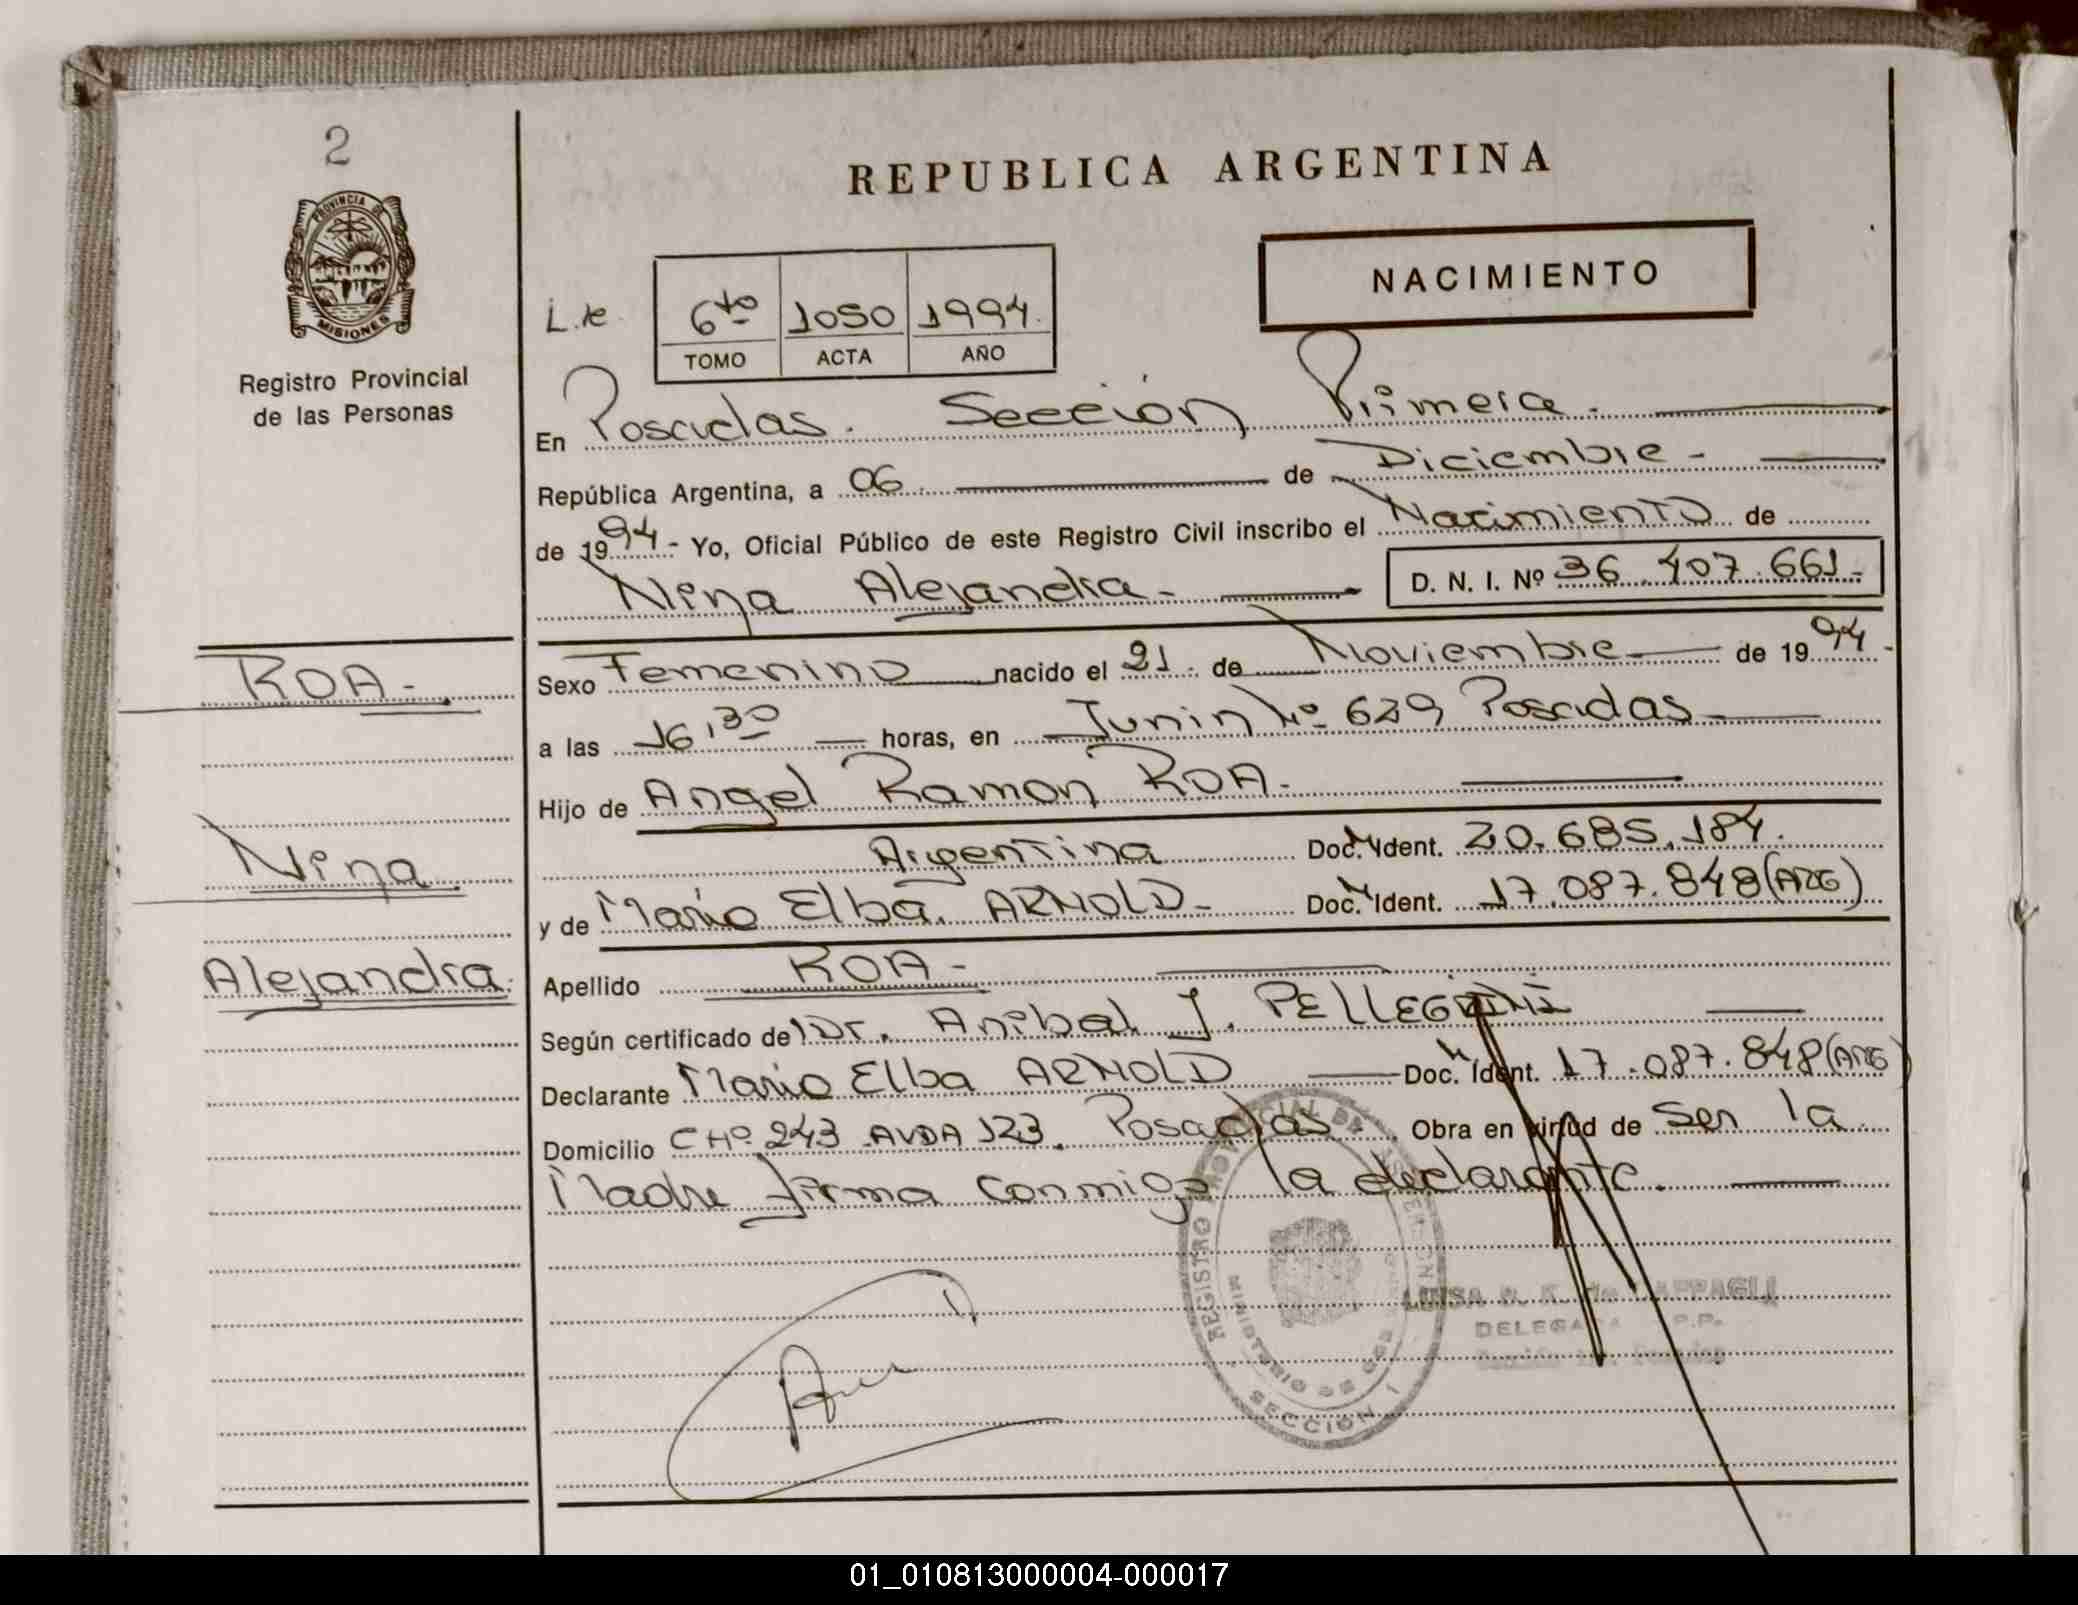 2
PROVINCIA DE
MISIONES
Registro Provincial
de las Personas
REPUBLICA ARGENTINA
NACIMIENTO
6to 1050 1994.
TOMO ACTA AÑO
En Posadas. Sección Primera.
República Argentina, a 06 de Diciembre -
de 1994 - Yo, Oficial Público de este Registro Civil inscribo el Nacimiento de
Alejandra - D. N. I. Nº 36.407.661-
ROA -
Sexo Femenino nacido el 21. de Noviembre de 1994 -
a las 16,30 horas, en Junin Nº 629 Posadas
Hijo de Angel Ramon ROA -
Argentina Doc. Ident. 20.685.184.
y de Maria Elba. ARNOLD - Doc. Ident. 17.087.848 (ARG)
Alejandra.
Apellido ROA -
Según certificado de Dr. Anibal J. PELLEGRINI
Declarante Maria Elba ARNOLD Doc. Ident. 17.087.848 (ARG)
Domicilio CHº 243 AVDA 123. Posadas Obra en virtud de Ser la
Madre firma conmigo la declarante.
REGISTRO PROVINCIAL DE
MINISTERIO DE
SECCION 1
DELEGADA
01_010813000004-000017